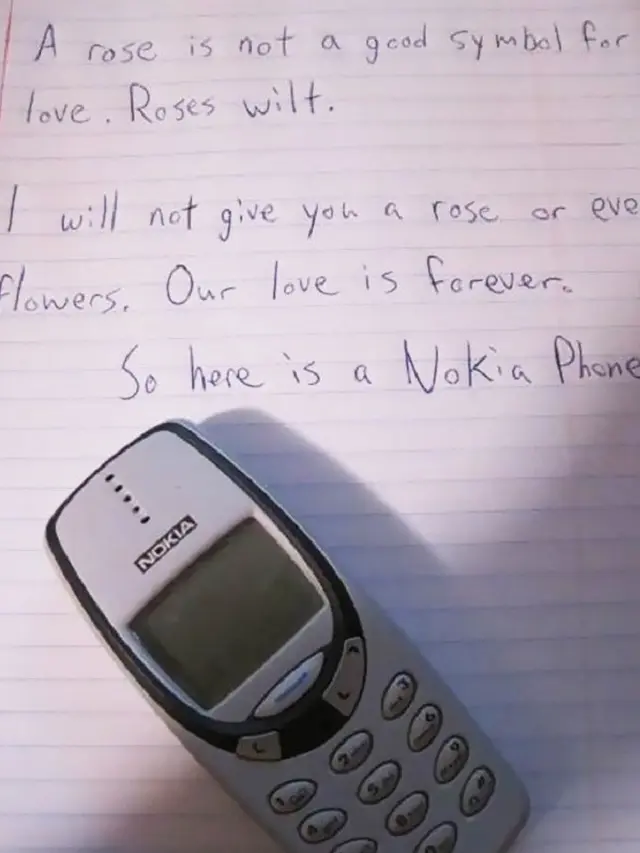 A rose is not a good symbol for
love. Roses wilt.
I will not give you a rose or eve
flowers. Our love is forever.
So here is a Nokia Phone
NOKIA